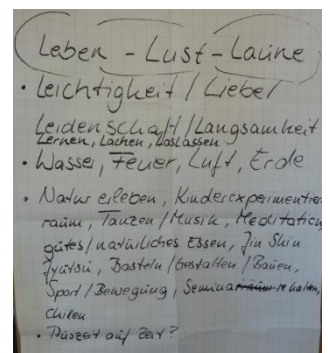 Leben - Lust - Laune
• Leichtigkeit / Liebe /
Leidenschaft / Langsamkeit
Lernen, Lachen, Loslassen
• Wasser, Feuer, Luft, Erde
• Natur erleben, Kinderexperimentier
raum, Tanzen / Musik, Meditation,
gutes / natürliches Essen, Jin Shin
Jyutsu, Basteln / Gestalten / Bauen,
Sport / Bewegung, Seminare halten,
chillen
• Auszeit auf Zeit?